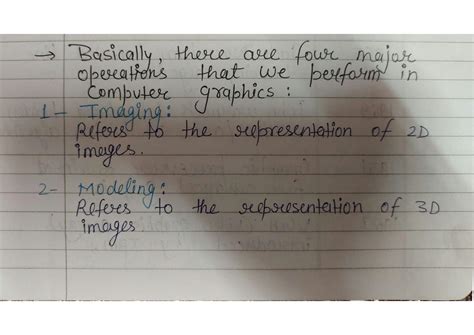 → Basically, there are four major
operations that we perform in
Computer graphics :
1- Imaging :
Refers to the representation of 2D
images.
2- Modeling :
Refers to the representation of 3D
images